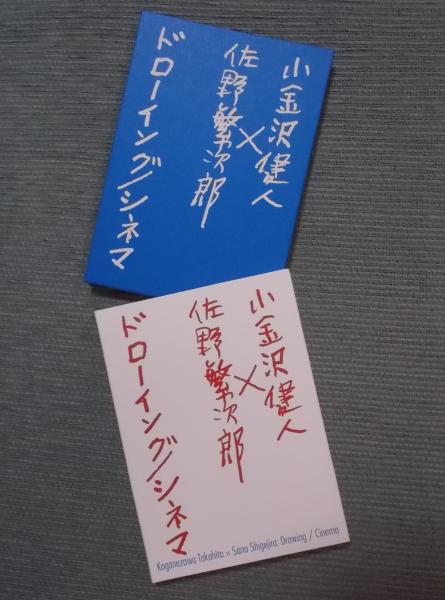 小金沢健人
×
佐野繁次郎
ドローイング/シネマ
小金沢健人
×
佐野繁次郎
ドローイング/シネマ
Koganezawa Takehito × Sano Shigejiro: Drawing / Cinema